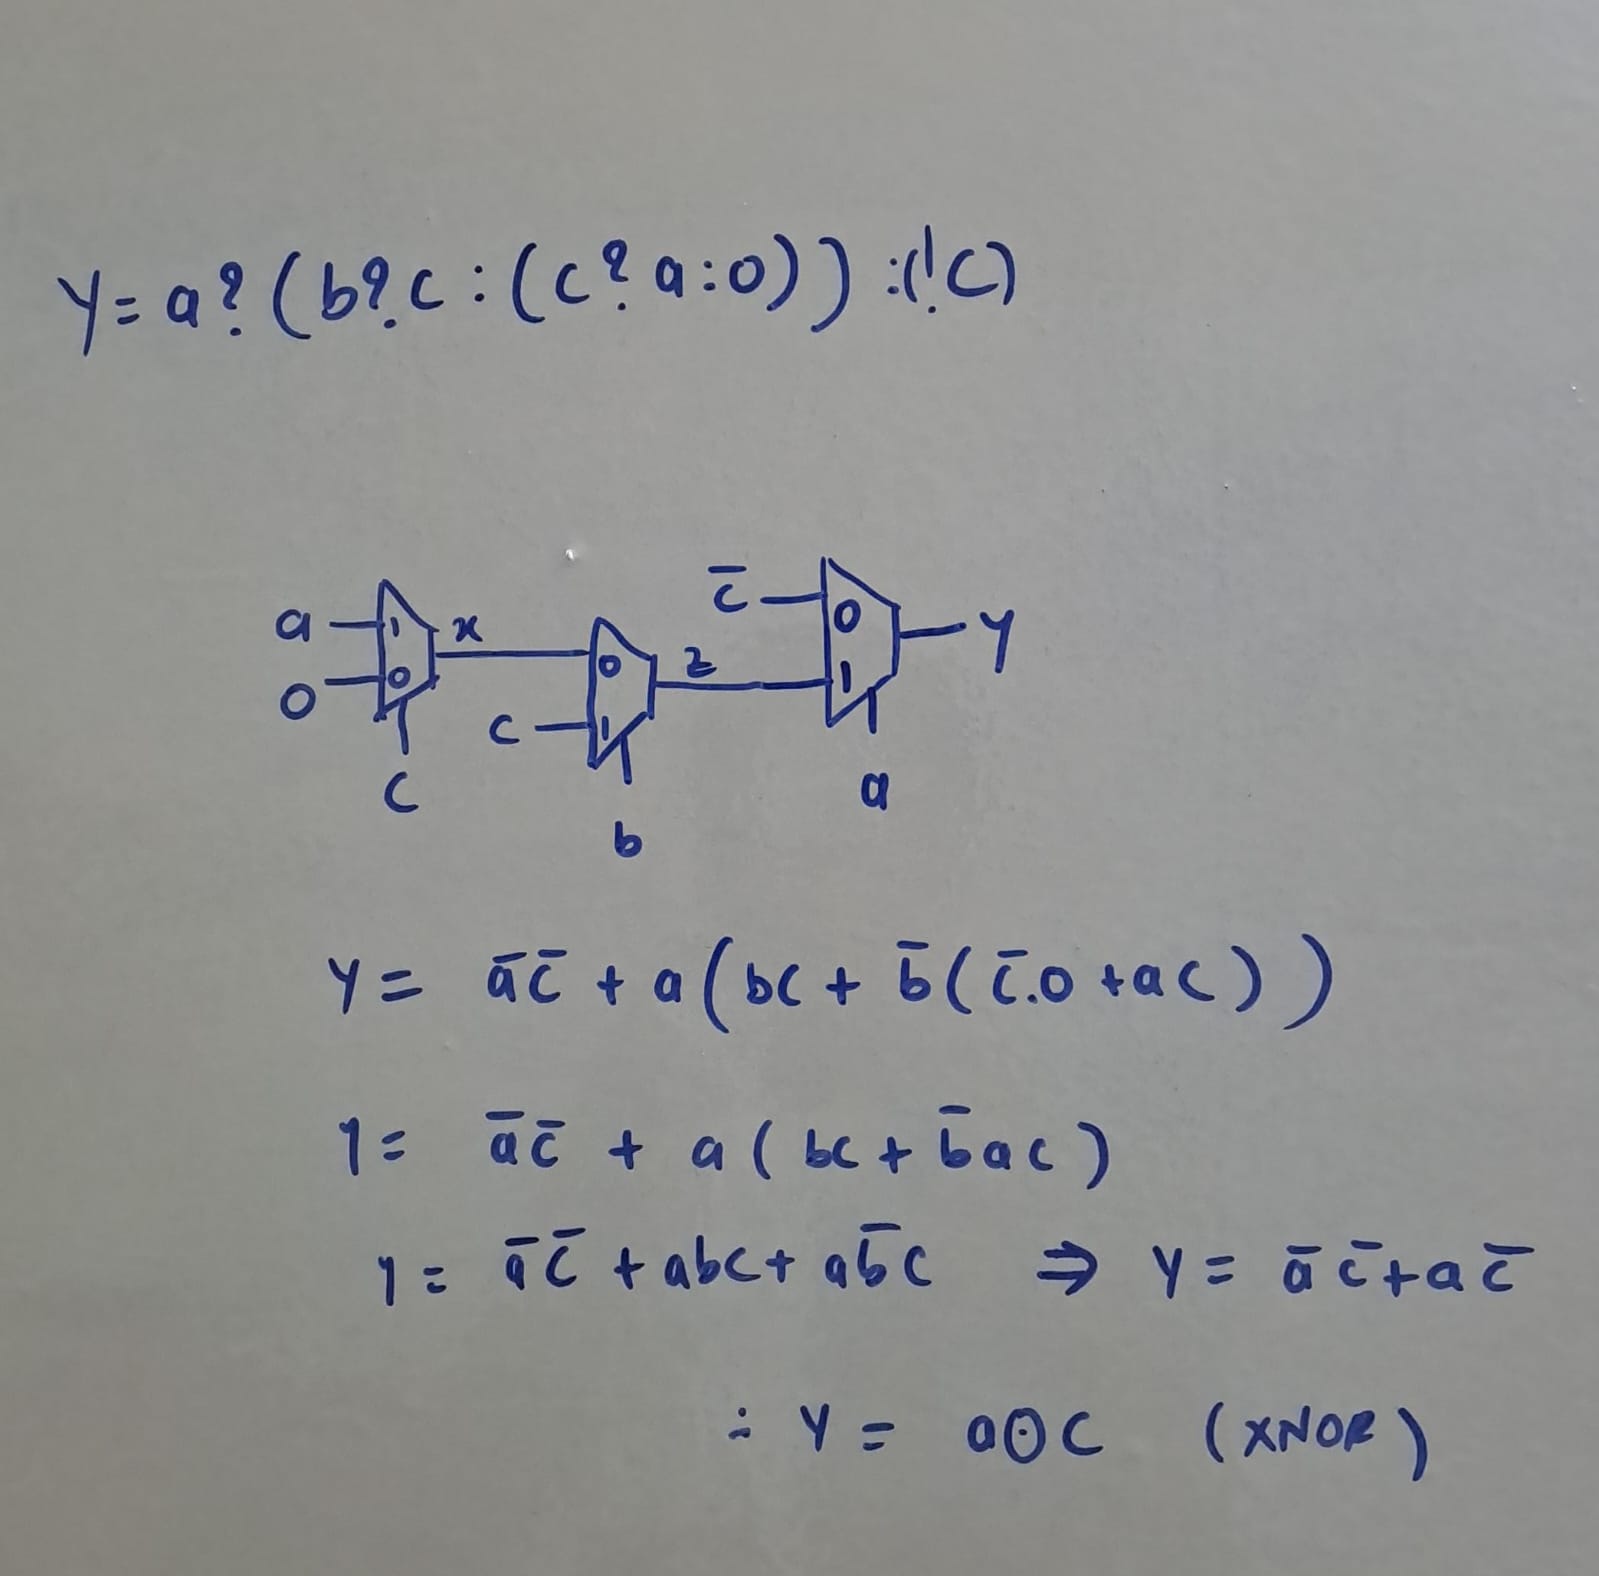 Y = a ? ( b ? c : ( c ? a : 0 ) ) : ( ! C )
a
0
1
0
x
C
0
1
c
b
z
c̅
0
1
a
Y
Y = a̅c̅ + a ( bc + b̅ ( c̅.0 + ac ) )
Y = a̅c̅ + a ( bc + b̅ac )
Y = a̅c̅ + abc + ab̅c ⇒ Y = a̅c̅ + ac̅
∴ Y = a⊙C (XNOR)